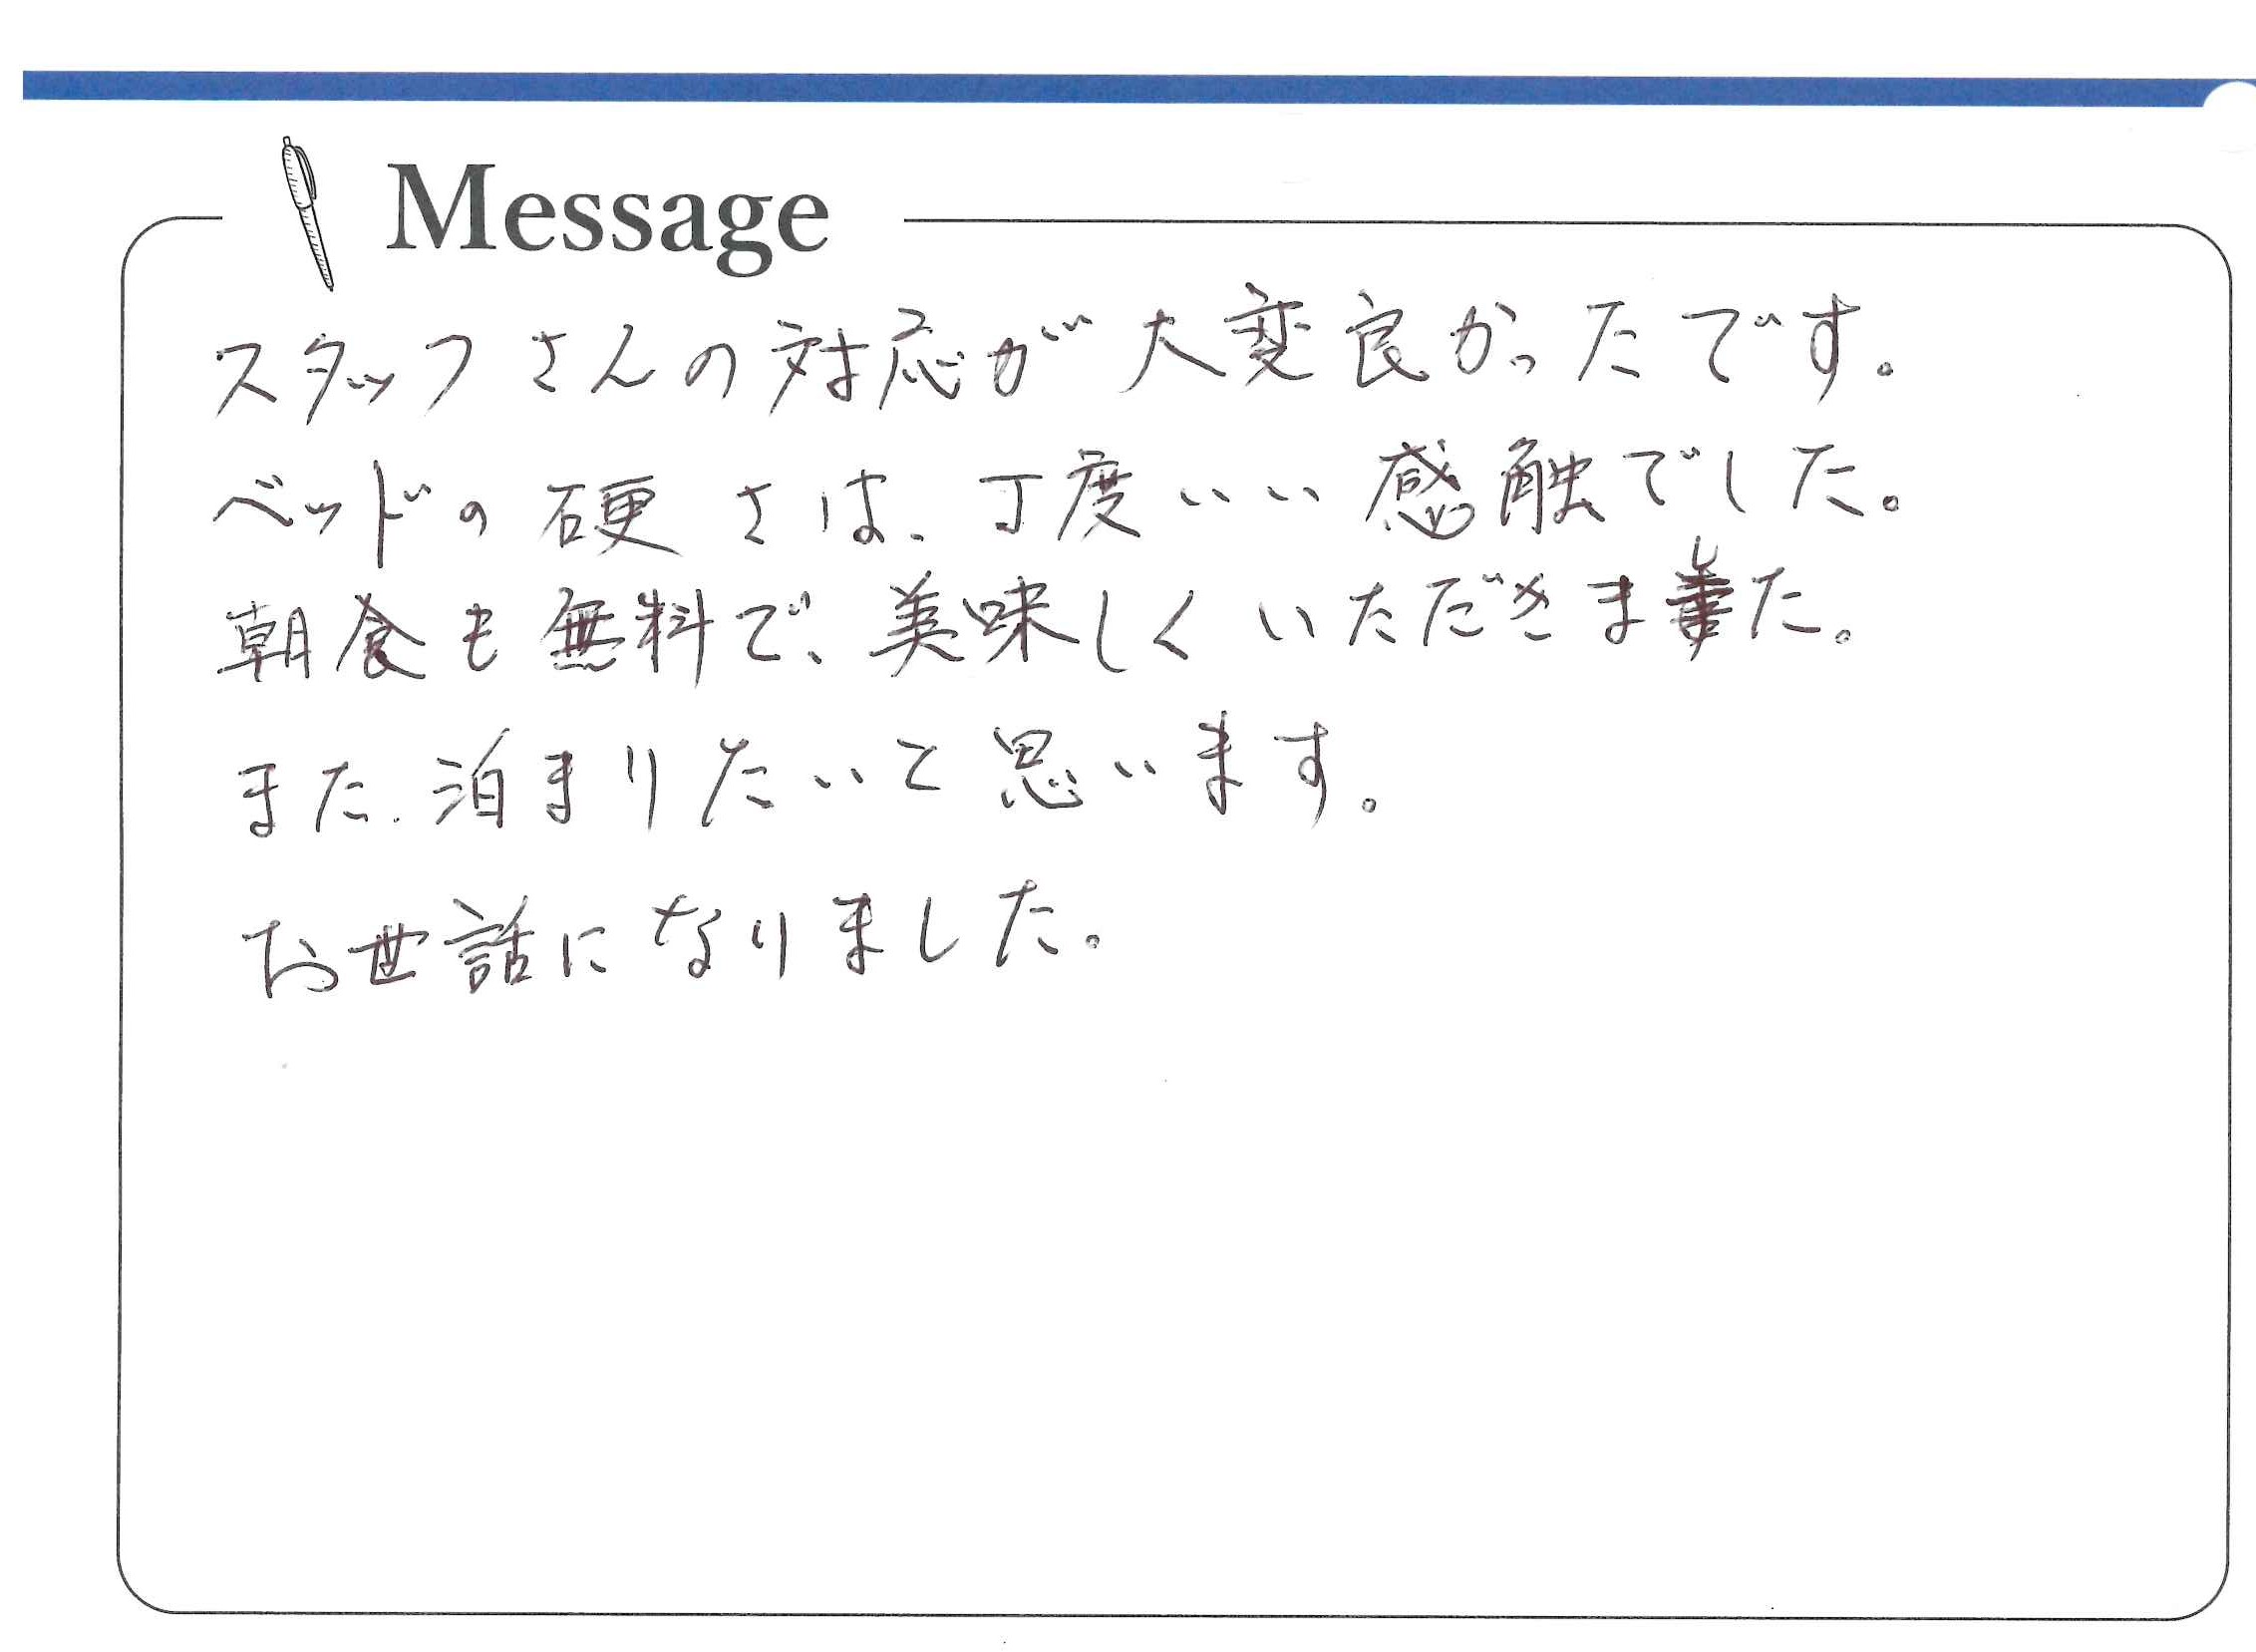 Message
スタッフさんの対応が大変良かったです。
ベッドの硬さは、丁度いい感触でした。
朝食も無料で、美味しくいただきました。
また、泊まりたいと思います。
お世話になりました。